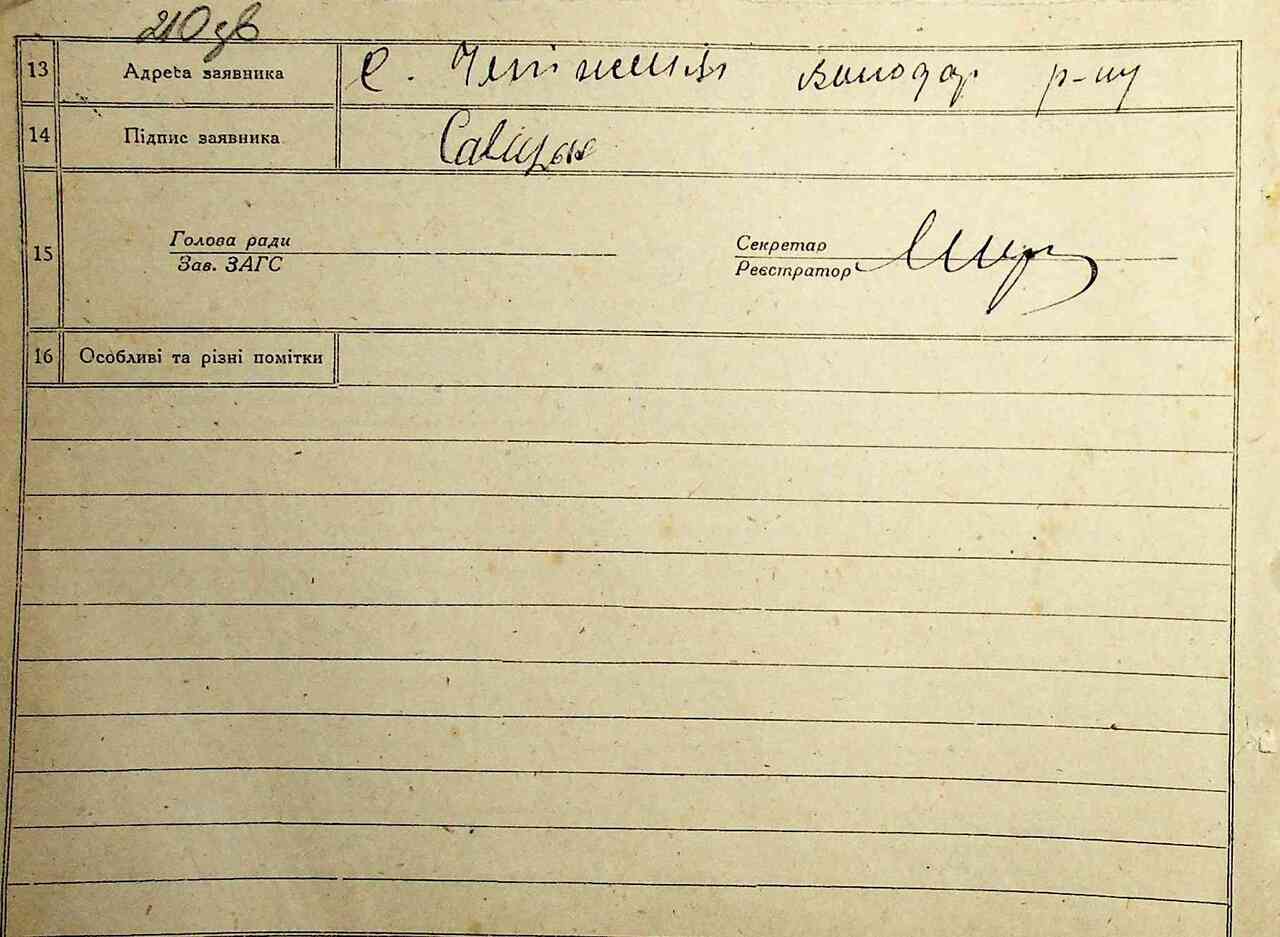 210 зв
13 Адреса заявника с. Чепіжинці Володар р-ну
14 Підпис заявника
15 Голова ради Секретар
Зав. ЗАГС Реєстратор
16 Особливі та різні помітки